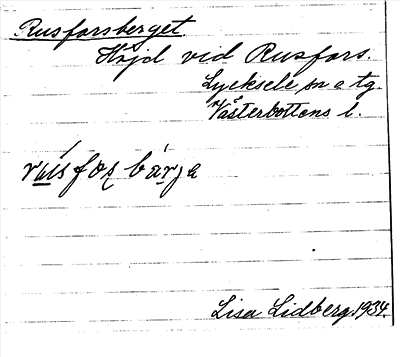 Rusforsberget.
Höjd vid Rusfors.
Lycksele, sn o tg.
Västerbottens l.
Lisa Lidberg 1934.